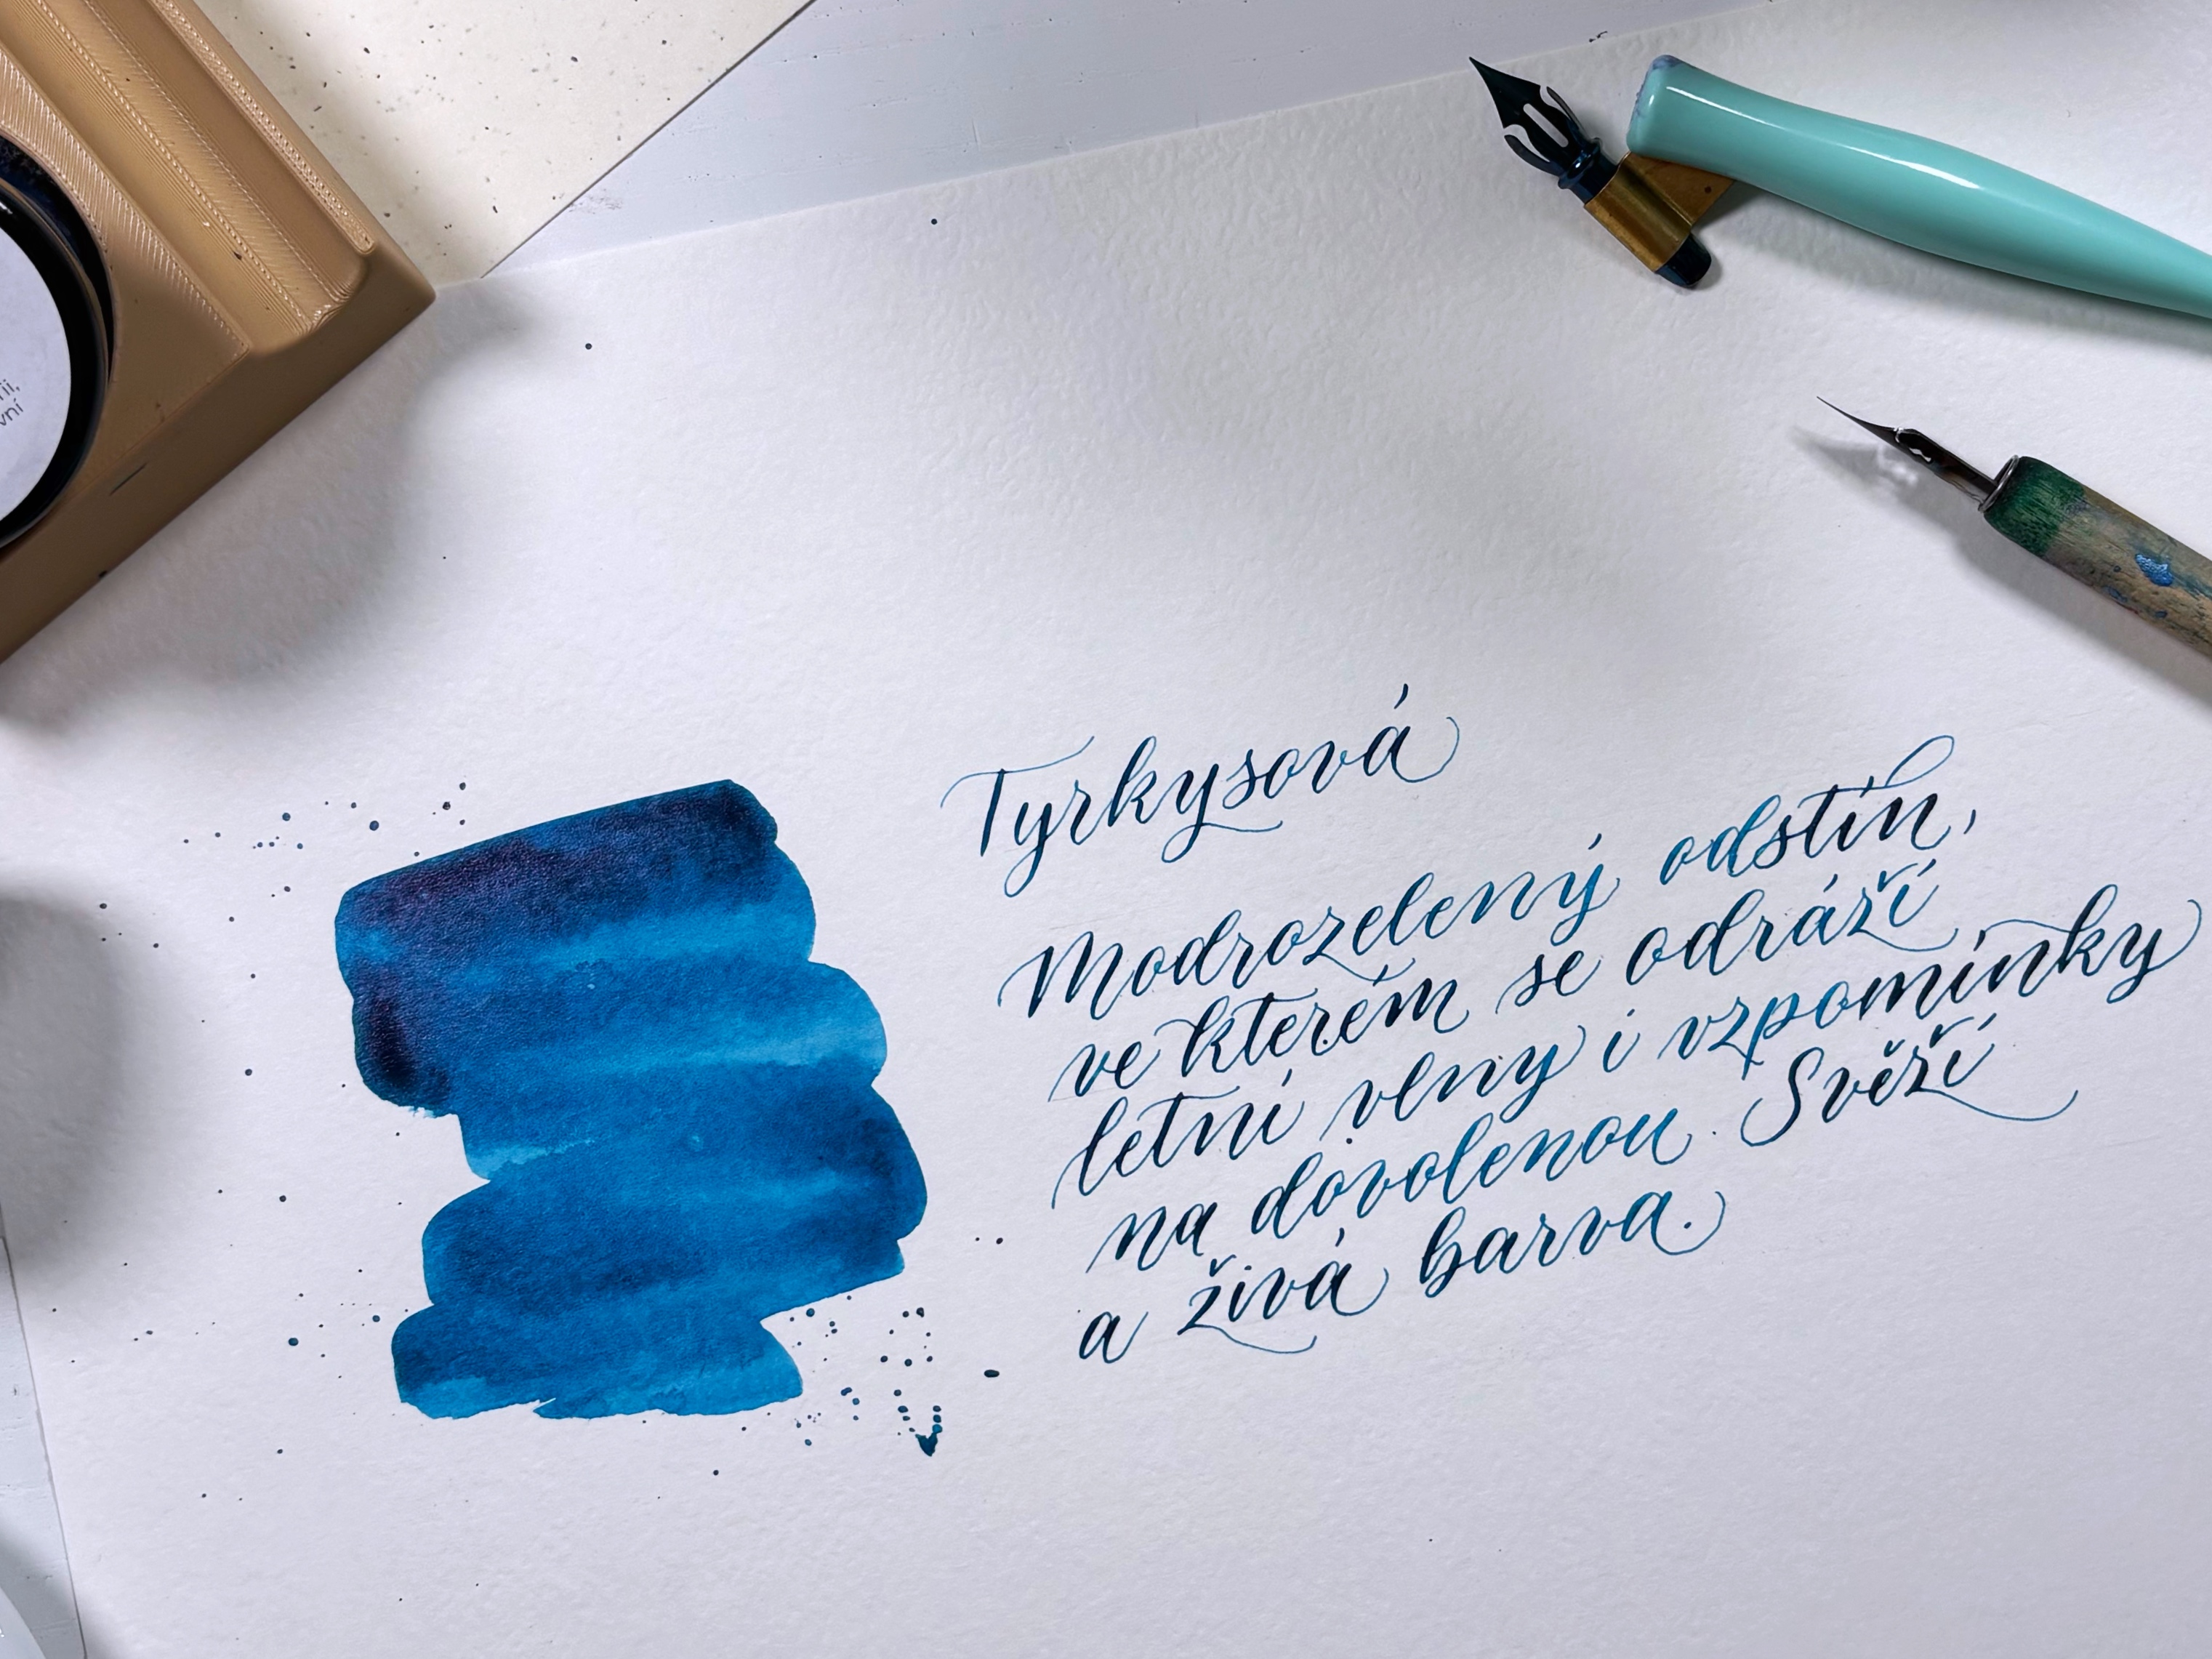 Tyrkysová
Modrozelený odstín,
ve kterém se odráží
letní vlny i vzpomínky
na dovolenou. Svěží
a živá barva.